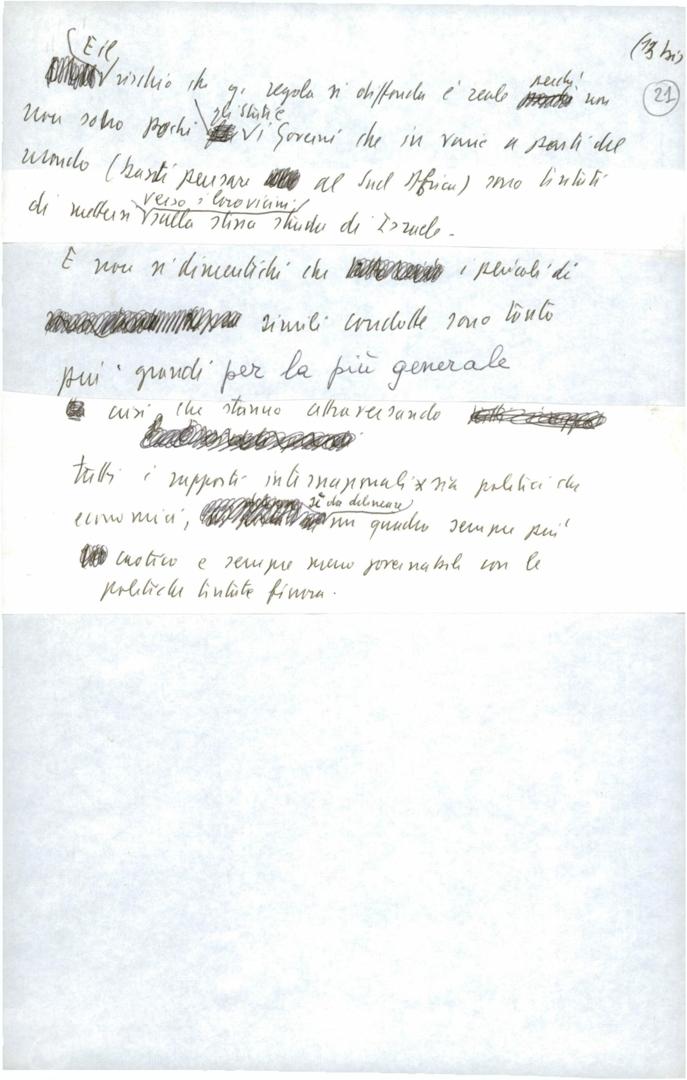 (13 bis)
21
E il
rischio che q. regola si diffonda è reale perché non
non sono pochi gli stati e i Governi che in varie parti del
mondo (basti pensare al Sud Africa) sono tentati
di mettersi verso i loro vicini sulla stessa strada di Israele.
E non si dimentichi che i pericoli di
simili condotte sono tanto
più grandi per la più generale
crisi che stanno attraversando
tutti i rapporti internazionali, sia politici che
economici, sì da delineare un quadro sempre più
caotico e sempre meno governabile con le
politiche tentate finora.